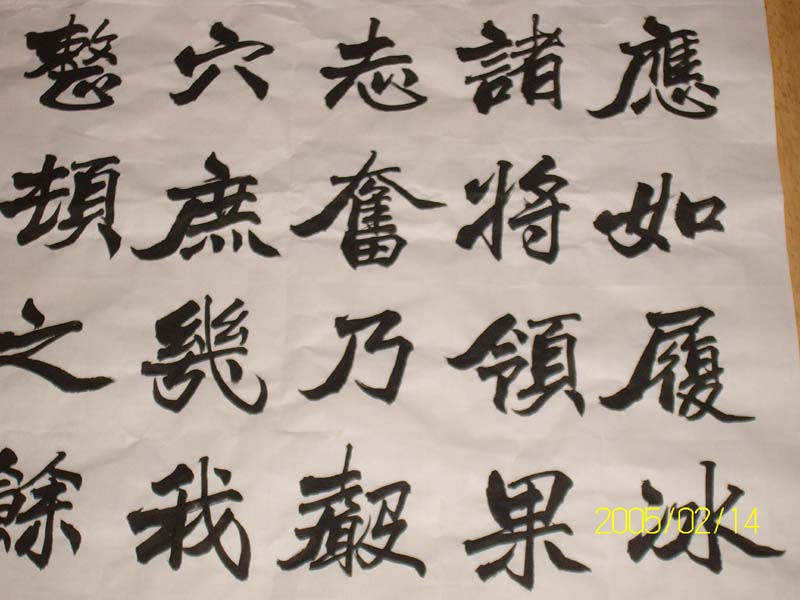 應如履冰
諸將領果
志奮乃
穴庶幾我
整頓之餘
2005/02/14